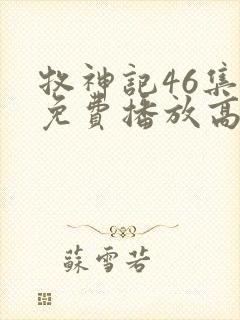 牧神記46集
免費播放高
蘇雪若